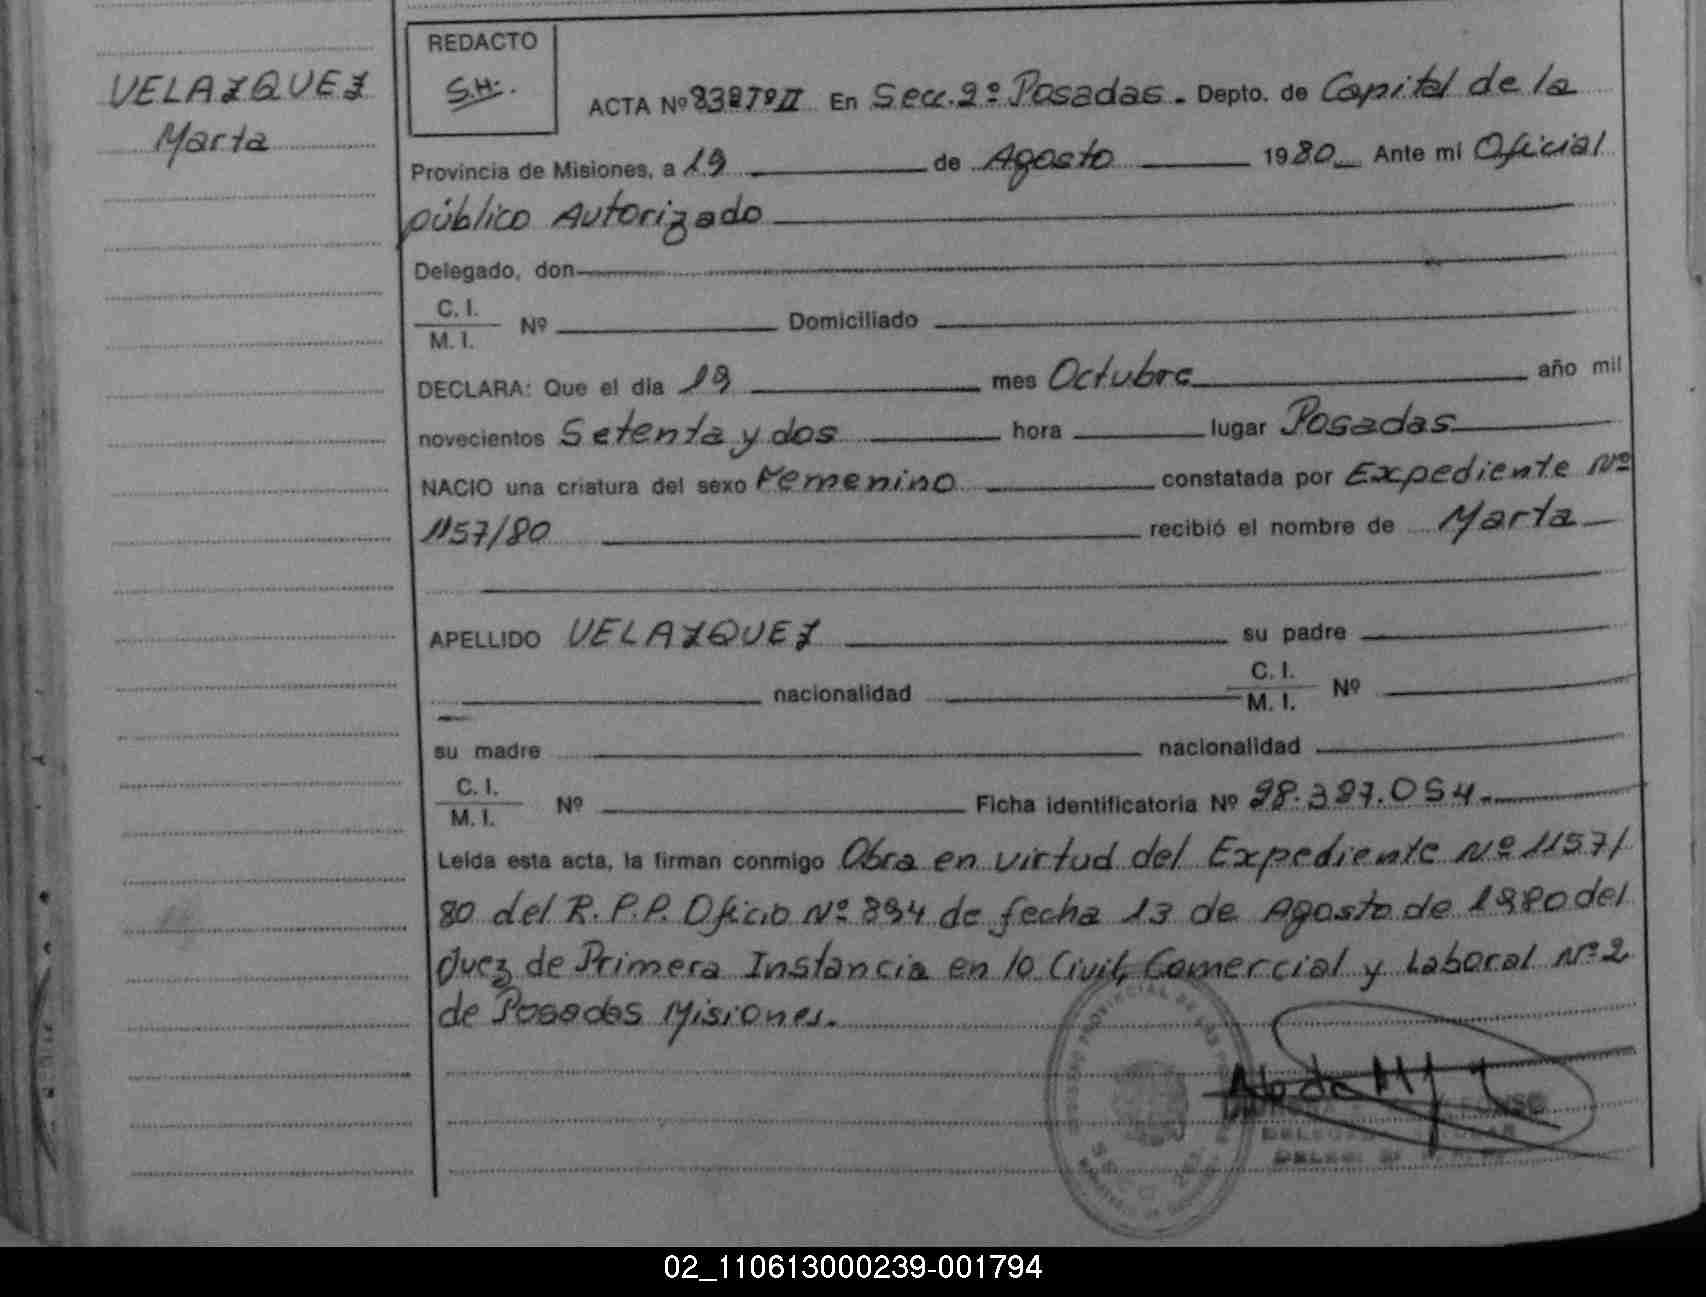 VELAZQUEZ
Marta
REDACTO
S.H.
ACTA Nº 8387ºII En Secc. 2º Posadas. Depto. de Capital de la
Provincia de Misiones, a 19 de Agosto 1980 Ante mi Oficial
público Autorizado
Delegado, don
C. I.
M. I.
Nº Domiciliado
DECLARA: Que el dia 19 mes Octubre año mil
novecientos Setenta y dos hora lugar Posadas
NACIO una criatura del sexo Femenino constatada por Expediente Nº
1157/80 recibió el nombre de Marta
APELLIDO VELAZQUEZ su padre
nacionalidad C. I.
M. I. Nº
su madre nacionalidad
C. I.
M. I.
Nº Ficha identificatoria Nº 98.397.054.
Leida esta acta, la firman conmigo Obra en virtud del Expediente Nº 1157/
80 del R.P.P. Oficio Nº 894 de fecha 13 de Agosto de 1980 del
Juez de Primera Instancia en lo Civil, Comercial y Laboral Nº 2
de Posadas Misiones.
02_110613000239-001794